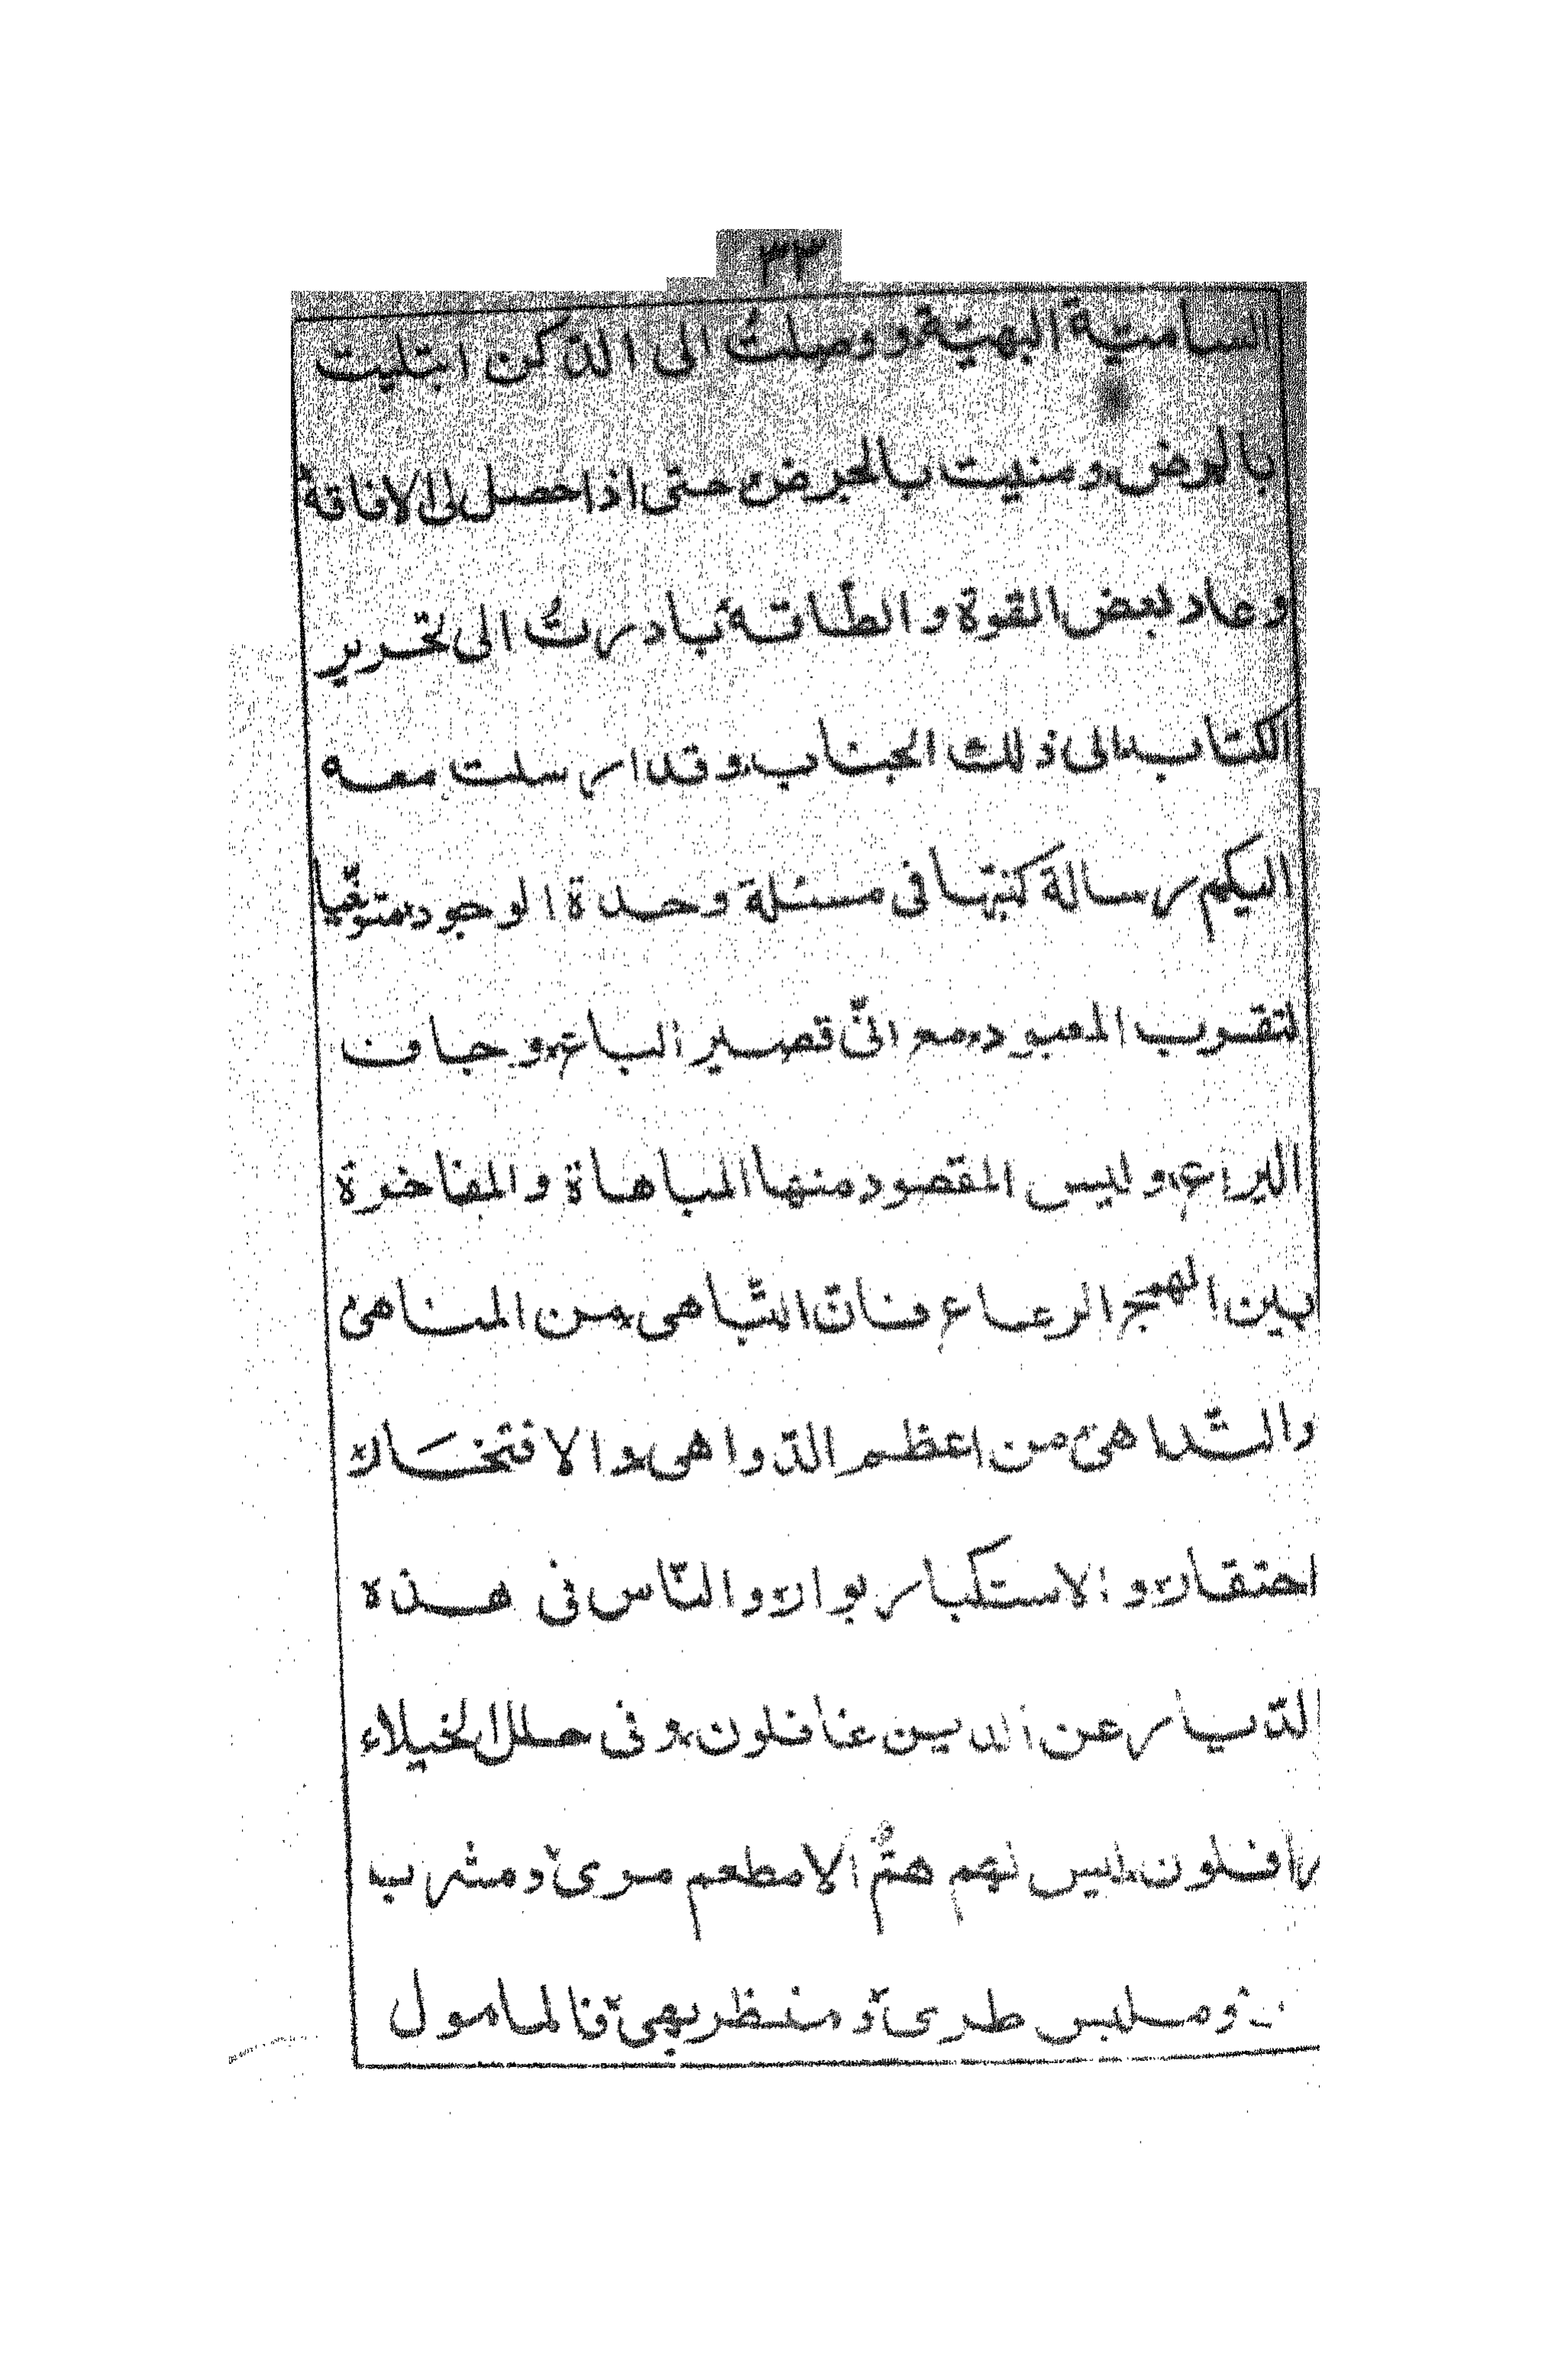 ٣٣
السامية البهيّة، ووصلتُ الى الدّكن ابتليت
بالمرض، ومنيت بالحرض، حتى اذا حصل لى الافاقة
وعاد بعض القوة والطّاقة، بادرتُ الى تحرير
الكتاب، الى ذلك الجناب، وقد ارسلت معه
اليكم رسالة كتبتها فى مسئلة وحدة الوجود، متوخّيا
لتقرب المعبود، مع انّى قصير الباع، وجاف
اليراع، وليس المقصود منها المباهاة والمفاخرة
بين الهمج الرعاع فانّ التّباهى، من المناهى
والتّداهى من اعظم الدّواهى، والافتخار
احتقار، والاستكبار بوار، والنّاس فى هذه
الدّيار عن الدين غافلون، وفى حلل الخيلاء
رافلون، ليس لهم همٌّ الا مطعم مرى، ومشرب
ومــلبس طرى، ومنــظر بهى، فالمامول